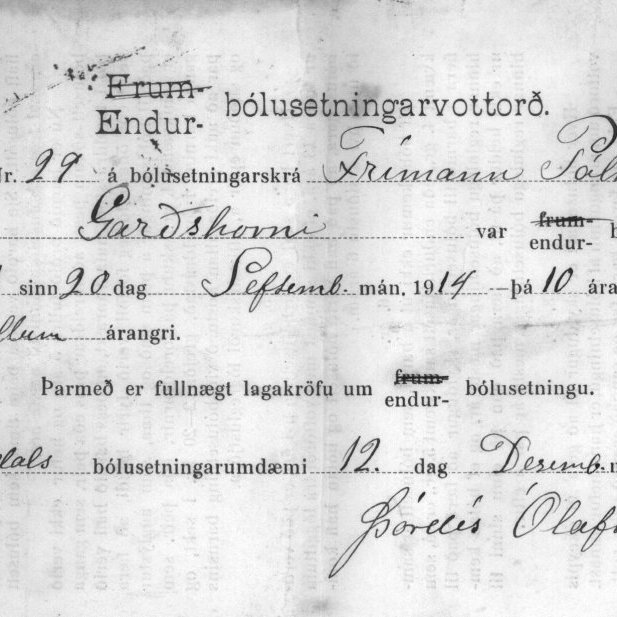 Frum-
Endur- bólusetningarvottorð.
Nr. 29 á bólusetningarskrá Frímann Pál
Garðshorni var frum- endur- b
sinn 20 dag Septemb. mán. 1914 —þá 10 ára
llum árangri.
Þarmeð er fullnægt lagakröfu um frum- endur- bólusetningu.
dals bólusetningarumdæmi 12. dag Desemb. m
Þórdís Ólaf